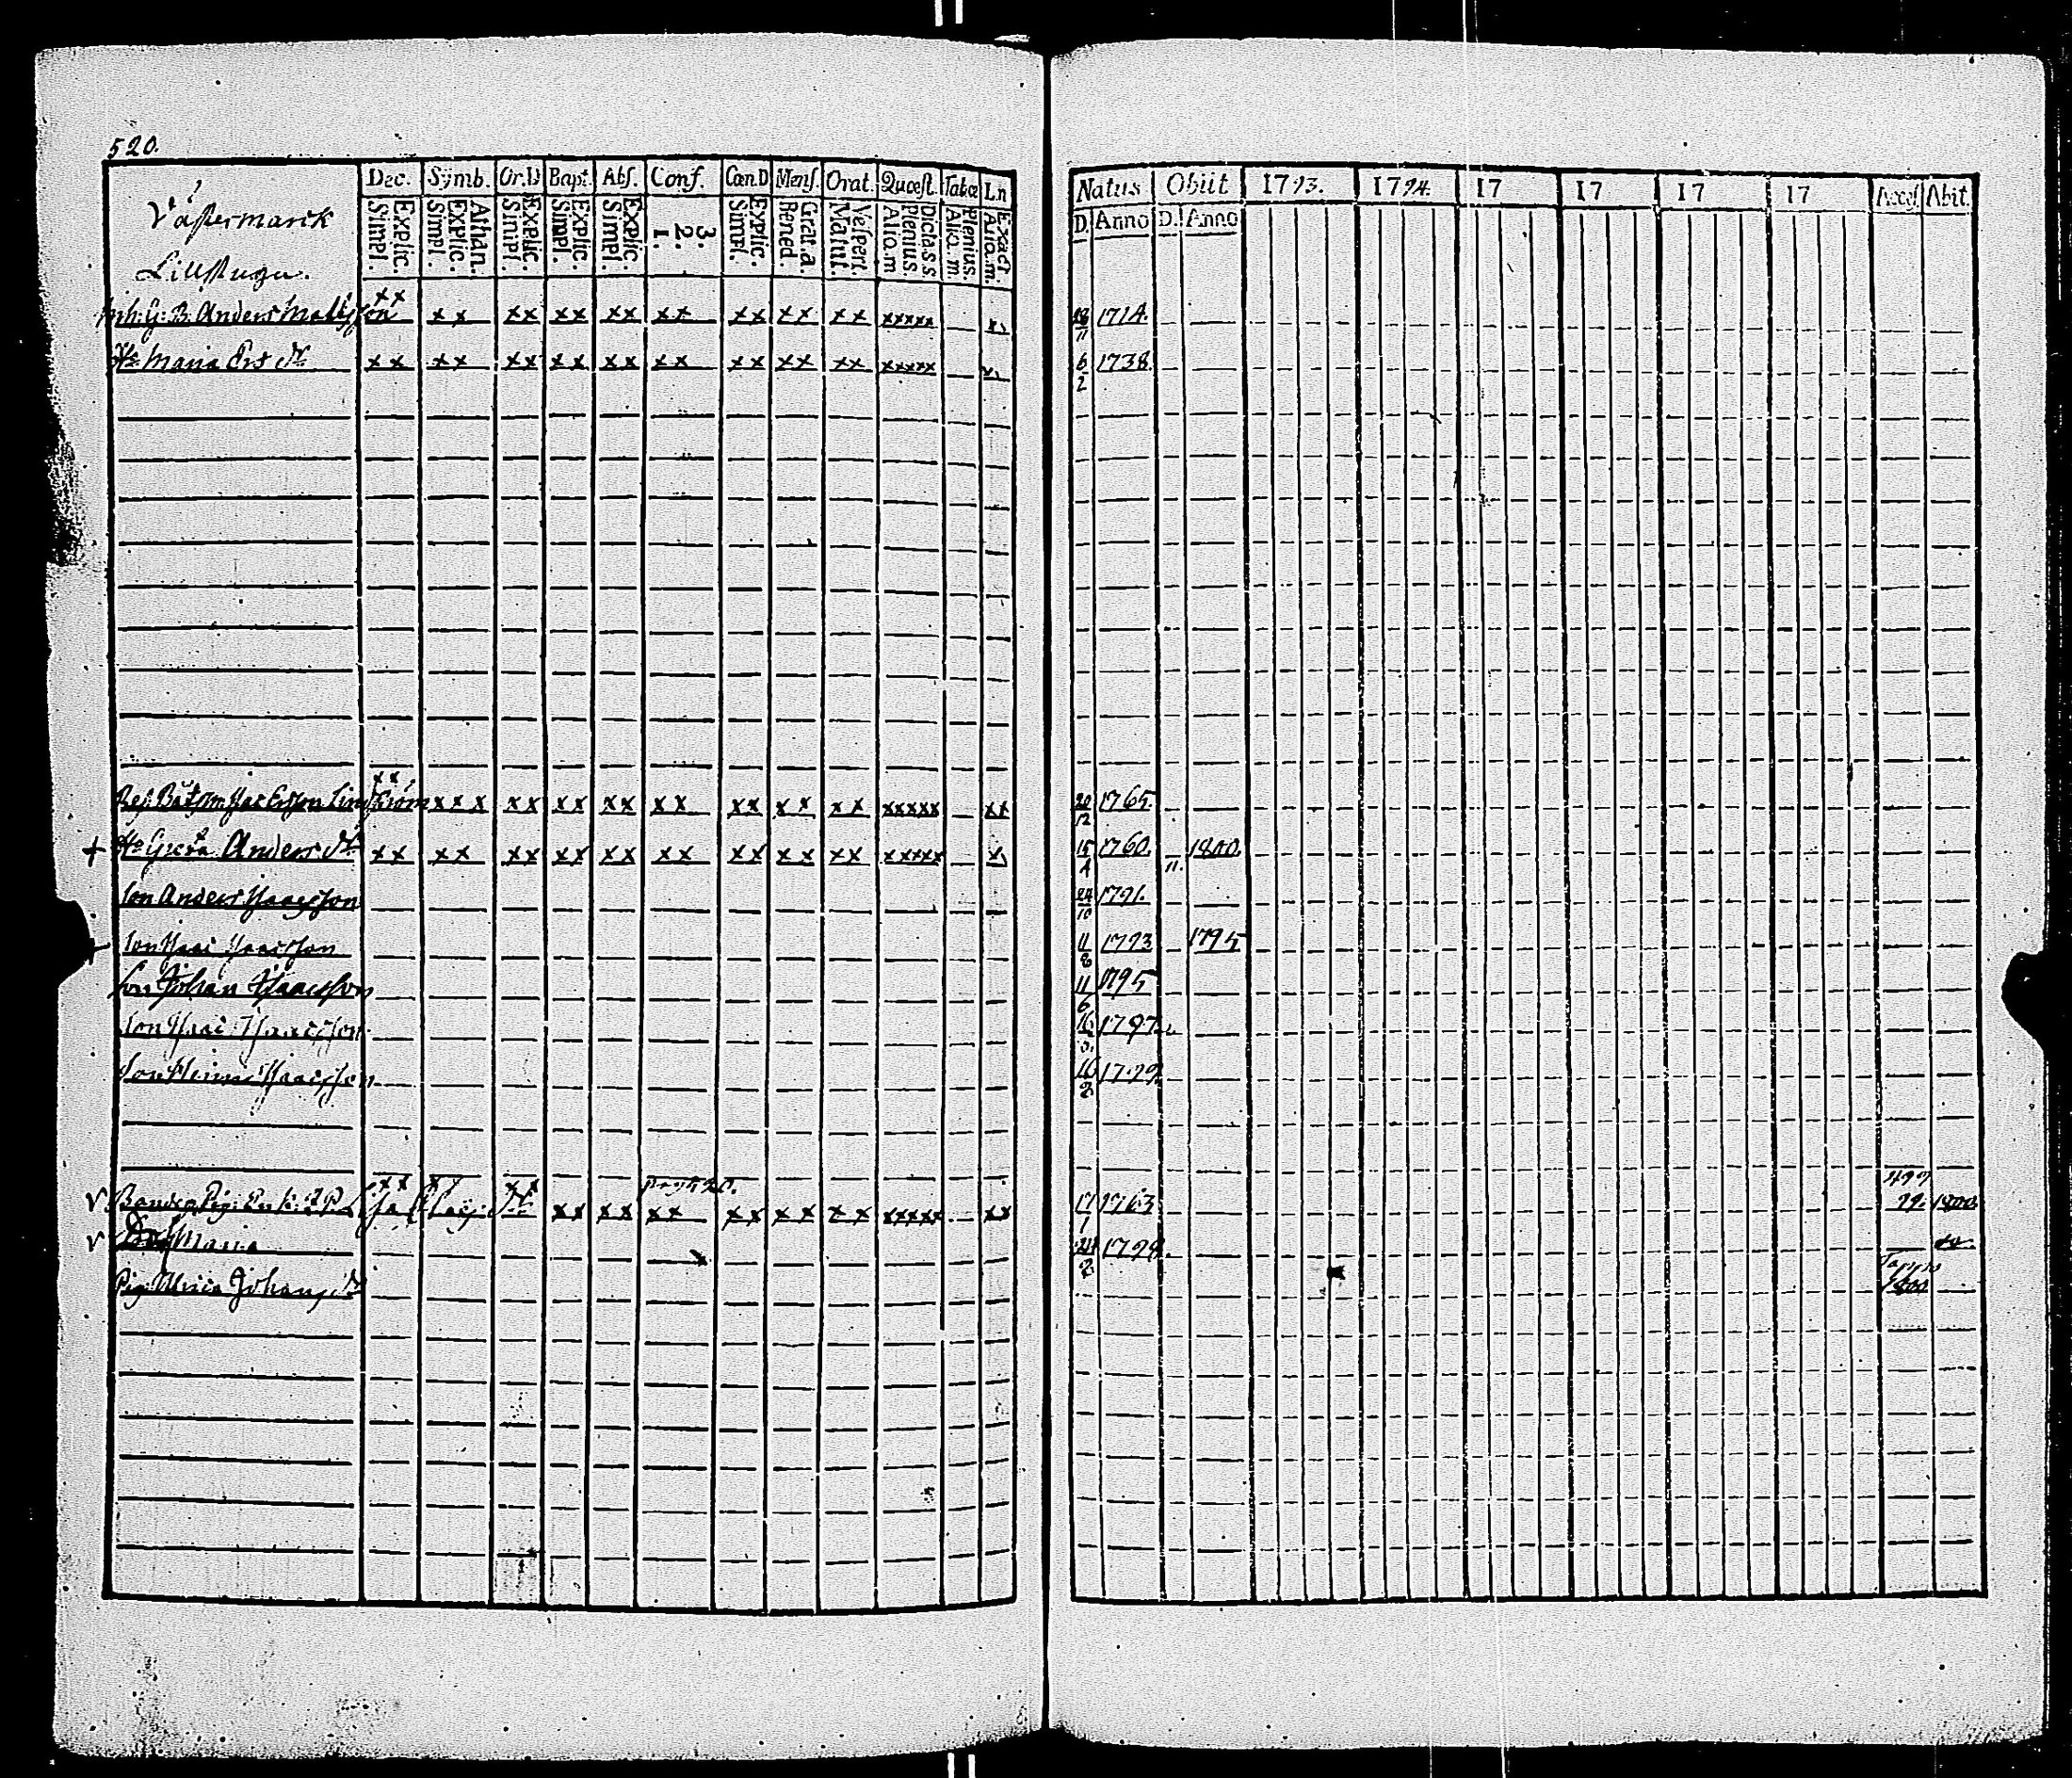 520.
Västermarck
Lillstugu.
Dec. Symb. Or.D Bapt. Abs. Conf. Cœn.D Mens. Orat. Quæst. Tabœ Ln
Explic. Simpl. Athan. Explic. Simpl. Explic. Simpl. Explic. Simpl. Explic. Simpl. 3. 2. 1. Explic. Simpl. Grat.a. Bened. Vespert. Matut. Dicta.s.s. Plenius. Alio.m Plenius. Alio.m. Exact. Alio.m.
Natus Obiit 1793. 1794. 17 17 17 17 Access. Abit.
D. Anno D. Anno
Inh: G: B. Anders Mattsson xx xx xx xx xx xx xx xx xx xxxxx x 18/11 1714.
Hu Maria Ers dr xx xx xx xx xx xx xx xx xx xxxxx x 6/2 1738.
Ref. Båtsm Isac Ersson Lindström xx xxx xx xx xx xx xx xx xx xxxxx xx 20/12 1765.
+ Hu Greta Anders dr xx xx xx xx xx xx xx xx xx xxxxx x 15/4 1760. 11. 1800.
Son Anders Isacsson 24/10 1791.
+ Son Isac Isacsson 11/8 1793 1795
Son Johan Isaacsson 11/6 1795
Son Isac Isaacsson 16 1797.
Son Isacsson 16/2 1799.
xx x xx xx xx xx xx xx xx xxxxx xx 17/1 1763 497 99. 1800.
v Maria 24/2 1798.
Pig. Johans dr 1800